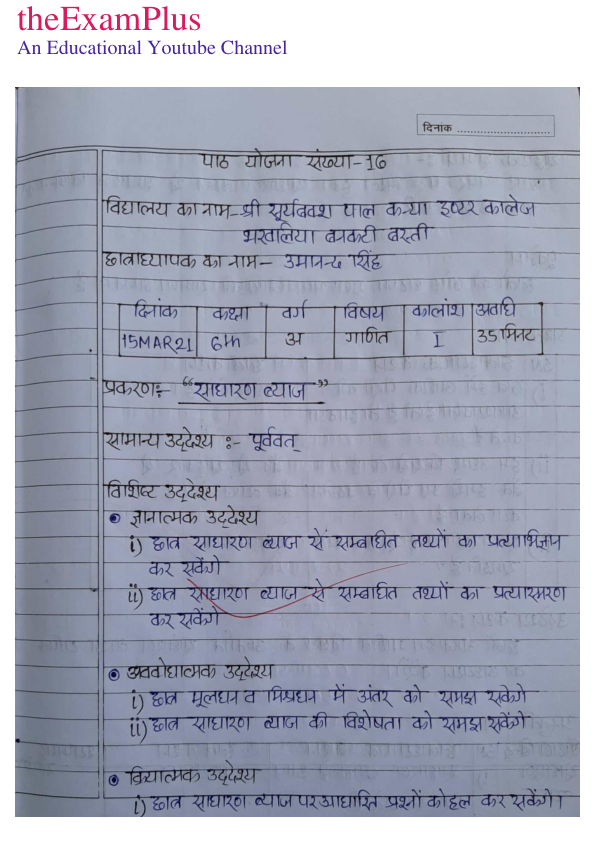 theExamPlus
An Educational Youtube Channel
दिनांक
पाठ योजना संख्या-16
विद्यालय का नाम- श्री सूर्यबक्श पाल कन्या इण्टर कालेज
बनकटी बस्ती
छात्राध्यापक का नाम- उमानन्द सिंह
दिनांक कक्षा वर्ग विषय कालांश अवधि
15MAR21 6th अ गणित I 35 मिनट
प्रकरणः- "साधारण ब्याज"
सामान्य उद्देश्य :- पूर्ववत्
विशिष्ट उद्देश्य
● ज्ञानात्मक उद्देश्य
i) छात्र साधारण ब्याज से सम्बाधित तथ्यों का प्रत्याभिज्ञप
कर सकेंगे
ii) छात्र साधारण ब्याज से सम्बाधित तथ्यों का प्रत्यास्मरण
कर सकेंगे
● अवबोधात्मक उद्देश्य
i) छात्र मूलधन व मिश्रधन में अंतर को समझ सकेगे
ii) छात्र साधारण ब्याज की विशेषता को समझ सकेंगे
● क्रियात्मक उद्देश्य
i) छात्र साधारण ब्याज पर आधारित प्रश्नों को हल कर सकेंगे।